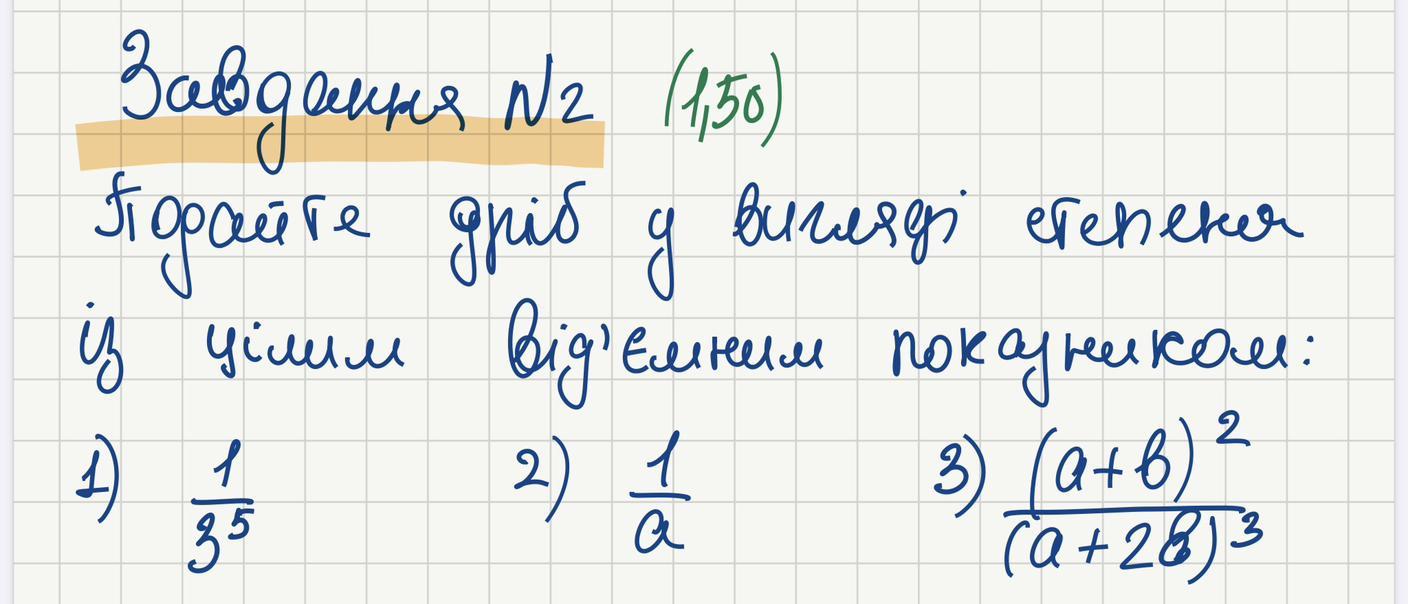 Завдання №2 (1,5б)
Подайте дріб у вигляді степеня
із цілим від'ємним показником:
1) 1/3⁵ 2) 1/a 3) (a+b)²/(a+2b)³